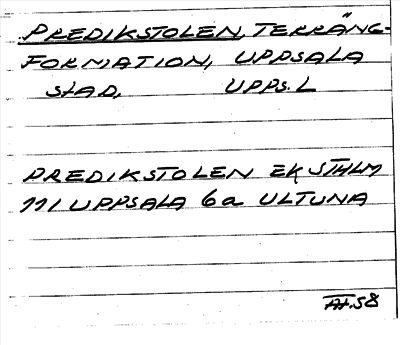 PREDIKSTOLEN, TERRÄNG-
FORMATION, UPPSALA
STAD, UPPS. L
PREDIKSTOLEN EK STHLM
111 UPPSALA 6a ULTUNA
58